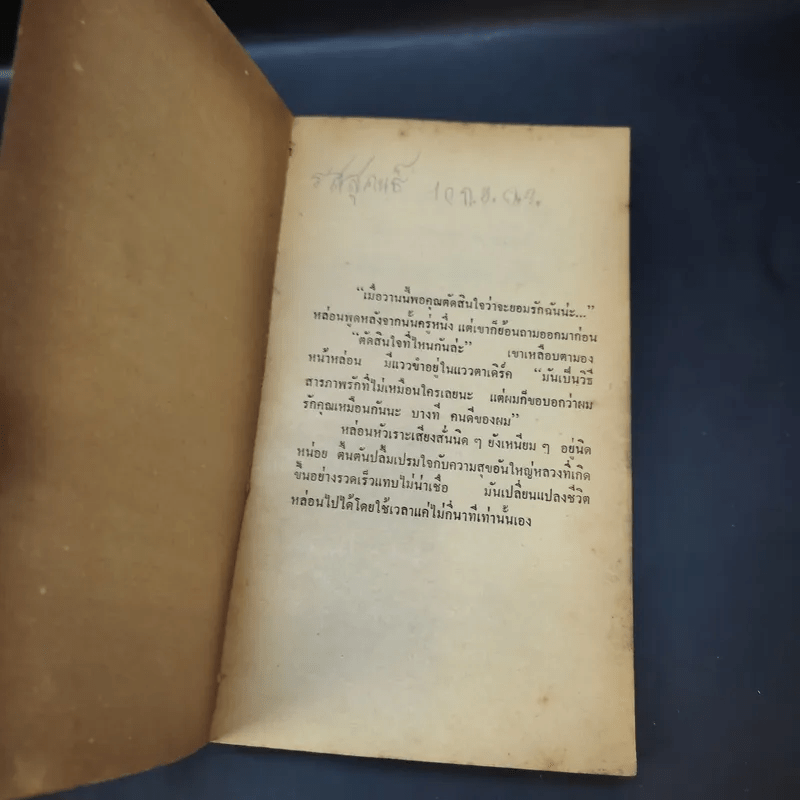 รสสุคนธ์ 10 ก.ย.
"เมื่อวานนี้พอคุณตัดสินใจว่าจะยอมรักฉันน่ะ..."
หล่อนพูดหลังจากนั้นครู่หนึ่ง แต่เขาก็ย้อนถามออกมาก่อน
"ตัดสินใจที่ไหนกันล่ะ" เขาเหลือบตามอง
หน้าหล่อน มีแววขำอยู่ในแววตาเดิร์ค "มันเป็นวิธี
สารภาพรักที่ไม่เหมือนใครเลยนะ แต่ผมก็ขอบอกว่าผม
รักคุณเหมือนกันนะ บางที่ คนดีของผม"
หล่อนหัวเราะเสียงสั่นนิด ๆ ยังเหนียม ๆ อยู่นิด
หน่อย ตื้นตันปลื้มเปรมใจกับความสุขอันใหญ่หลวงที่เกิด
ขึ้นอย่างรวดเร็วแทบไม่น่าเชื่อ มันเปลี่ยนแปลงชีวิต
หล่อนไปได้โดยใช้เวลาแค่ไม่กี่นาทีเท่านั้นเอง